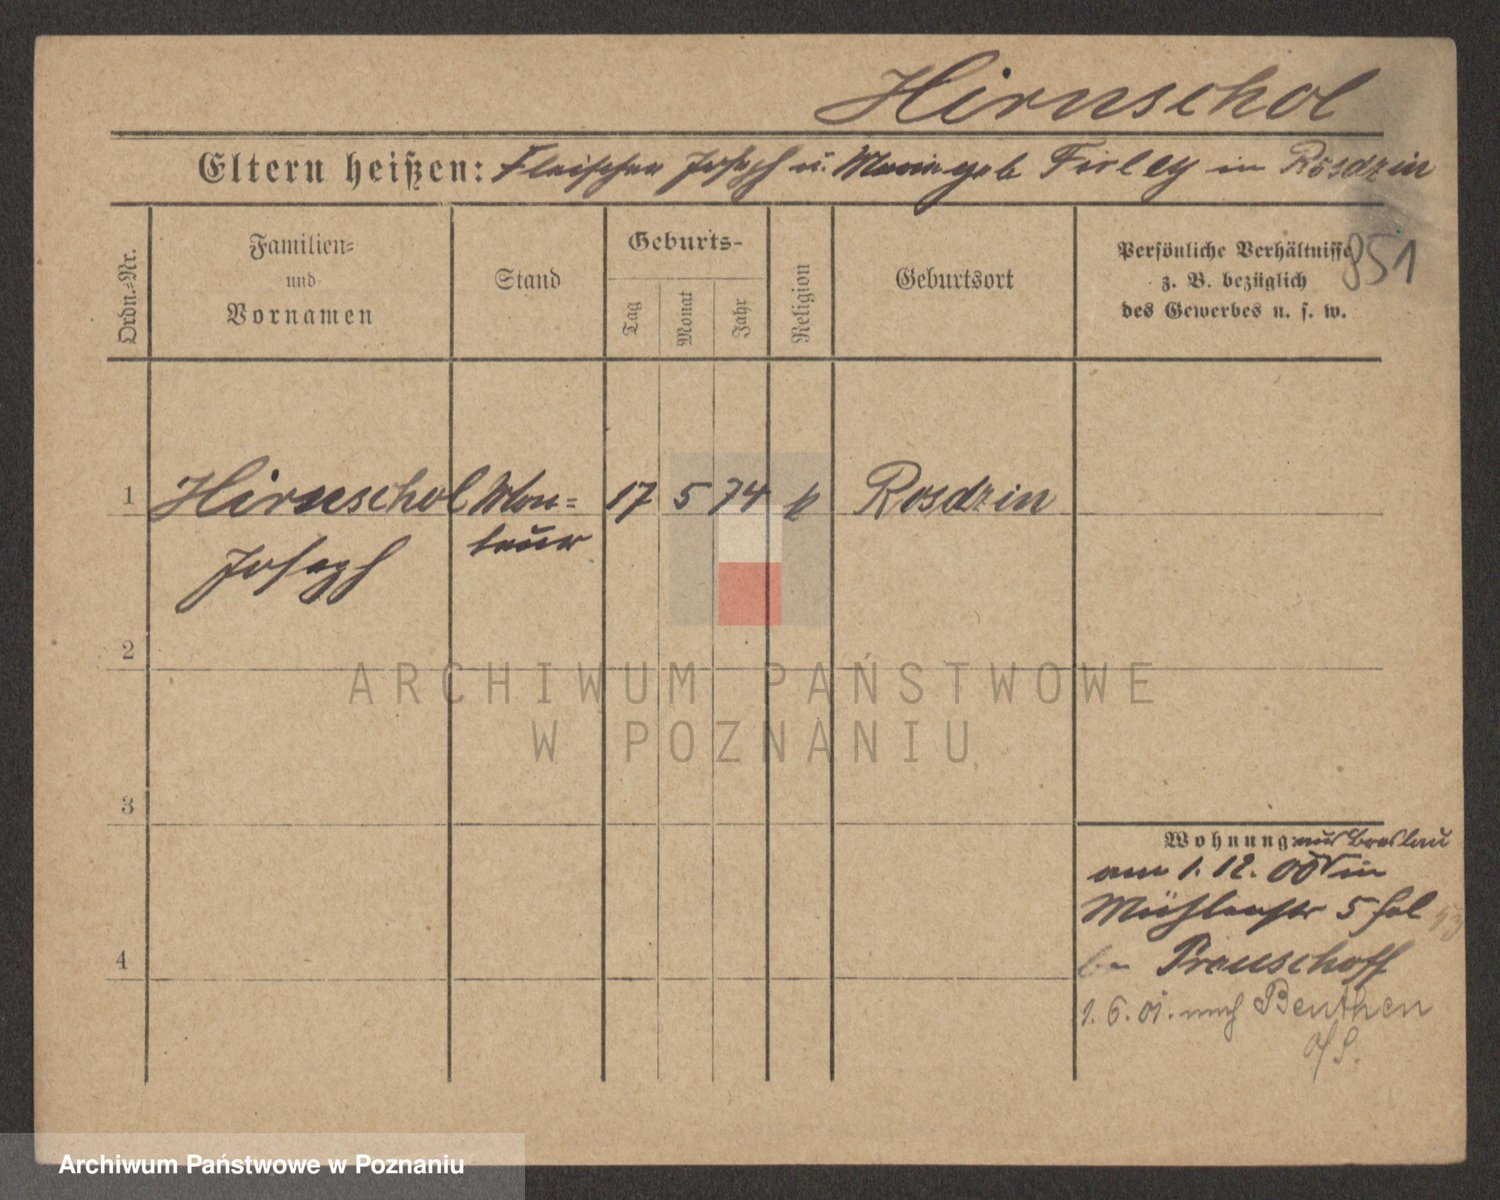 Hirnschol
Eltern heißen: Fleischer Joseph u. Marie geb. Firley in Rosdzin
Ordn.-Nr.
Familien-
und
Vornamen
Stand
Geburts-
Tag
Monat
Jahr
Religion
Geburtsort
Persönliche Verhältnisse
z. B. bezüglich
des Gewerbes u. s. w.
951
1 Hirnschol Mon= 17 5 74 k Rosdzin
Joseph teur
2
3
4
Wohnung: aus Breslau
am 1. 12. 00 in
Mühlenstr 5
Prauschoff
1. 6. 01. nach Beuthen
O/S.
ARCHIWUM PAŃSTWOWE
W POZNANIU
Archiwum Państwowe w Poznaniu